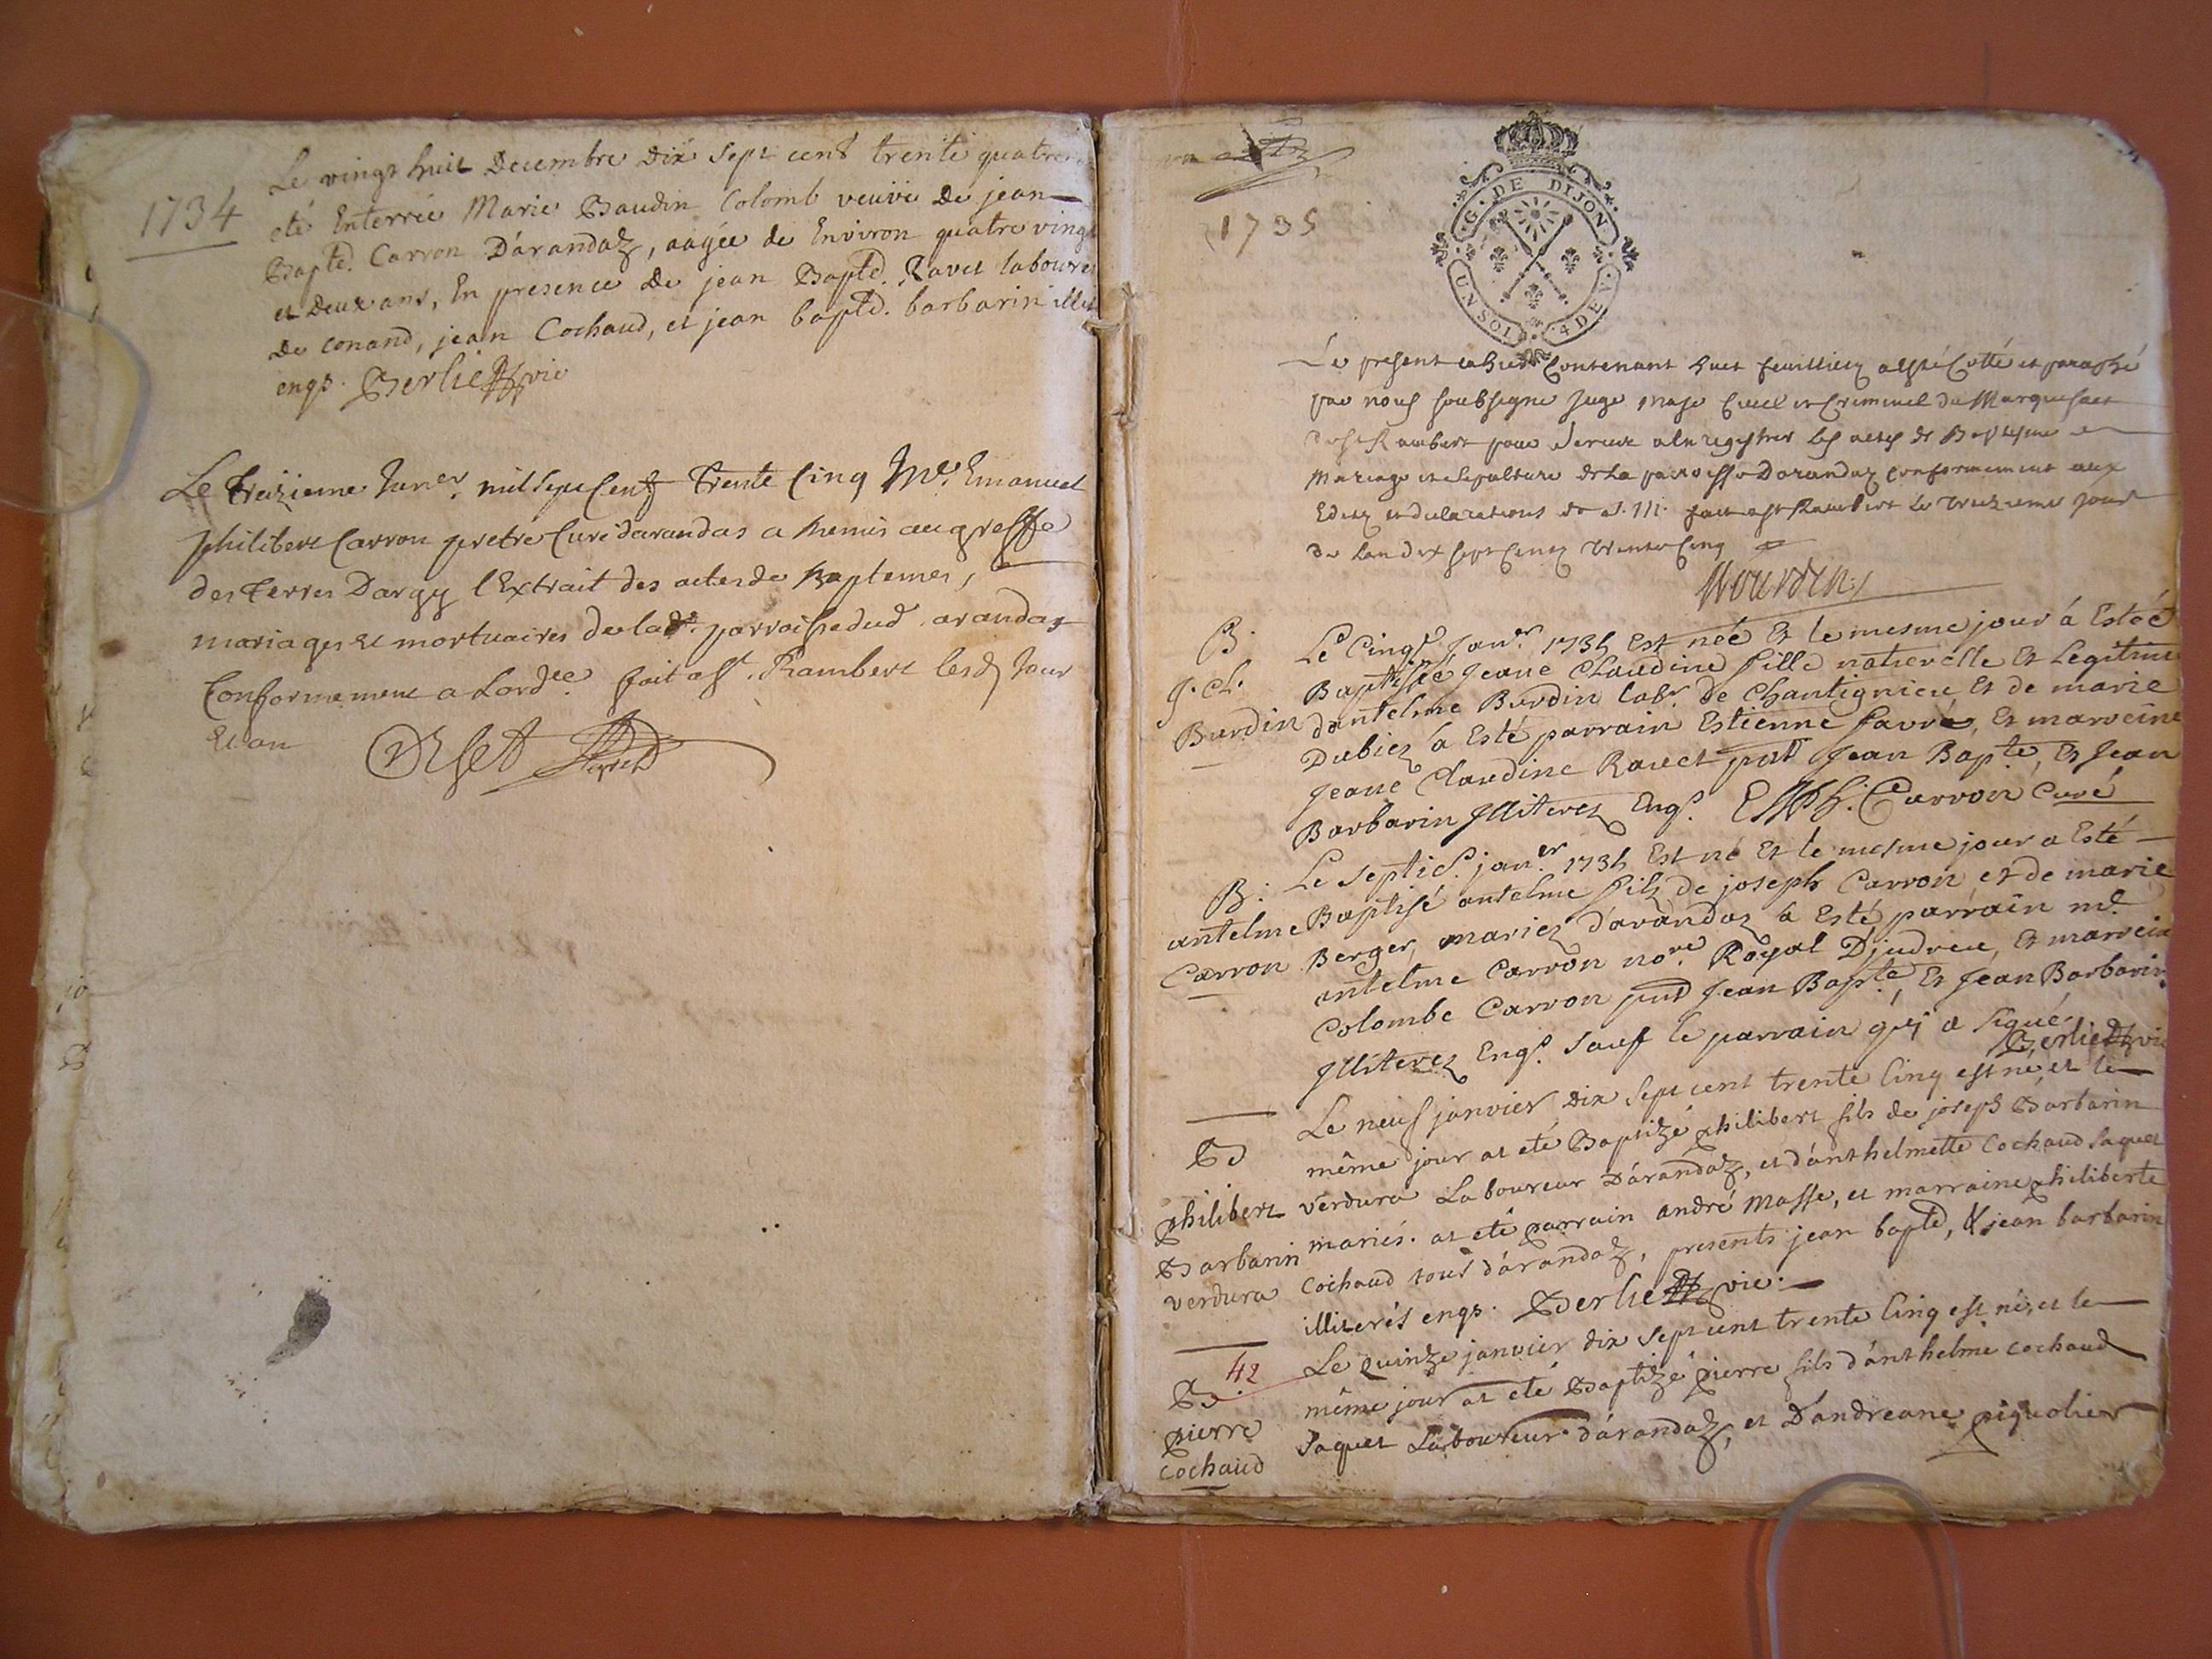 1734
Le vingt huit Decembre Dix sept cent trente quatre
eté Enterrée Marie Baudin Colomb veuve de jean
Baptē. Carron D'arandaz, aagée de Environ quatre vingt
et Deux ans, En presence de jean Baptē. Ravet laboure
de conand, jean Cochaud, et jean baptē. barbarin illit
engs. Berliet vic
Le treizieme Janer. mil sept cent trente cinq Mre. Emanuel
philibert Carron pretre Curé darandas a remis au greffe
des terres Dargy l'Extrait des actes de Baptemes,
mariages et mortuaires de lad. parroisse dud. arandas
Conformement a Lordce. fait a St. Rambert lesd Jour
Et an
Orset
1735
G. DE DIJON
UN SOL 4 DE V.
Le present cahier Contenant huit feuilliez a esté Cotté et paraphé
par nous soubsigné Juge maje Civil et Criminel du Marquisat
de St Rambert pour servir a Enregistrer les actes de Baptesme
Mariage et sepulture de la paroisse Darandaz conformement aux
Edits et declarations de S. M. fait a St Rambert le treizieme jour
de Lan dix sept Cents trente Cinq
B.
J. Cl.
Burdin
Le Cinqe. Janer. 1735 Est née Et le mesme jour á Estéé
Baptisée Jeane Claudine fille naturelle Et Legitime
dantelme Burdin labr. de Chantignieu Et de marie
Dubiez á Esté parrain Estienne favre, Et marreine
Jeane Claudine Ravet pnt Jean Bapte, Et Jean
Barbarin Illiterez Engs. E Ph. Carron Curé
B.
antelme
Carron
Le septie. janer 1735 Est né Et le mesme jour a Esté
Baptisé antelme fils de joseph Carron et de marie
Berger, mariez d'arandaz á Esté parrain me.
antelme Carron nore. Royal Djudreu, Et marreine
Colombe Carron pnt Jean Bapte, Et Jean Barbarin
Illiterez Engs. sauf le parrain qui a signé.
Berliet vic
B
philibert
Barbarin
verdura
Le neuf janvier Dix sept cent trente cinq est né, et le
même jour at eté Baptizé philibert fils de joseph Barbarin
verdura Laboureur D'arandaz, et d'anthelmette Cochaud Jaquet
mariés. at eté parrain andré Masse, et marraine philiberte
Cochaud tous d'arandaz, presents jean baptē, & jean barbarin
illiterés engs. Berliet vic.
42
B.
pierre
cochaud
Le quinze janvier dix sept cent trente cinq est né, et le
même jour at eté Baptizé pierre fils d'anthelme cochaud
Jaquet Laboureur d'arandaz, et D'andreane piquolier